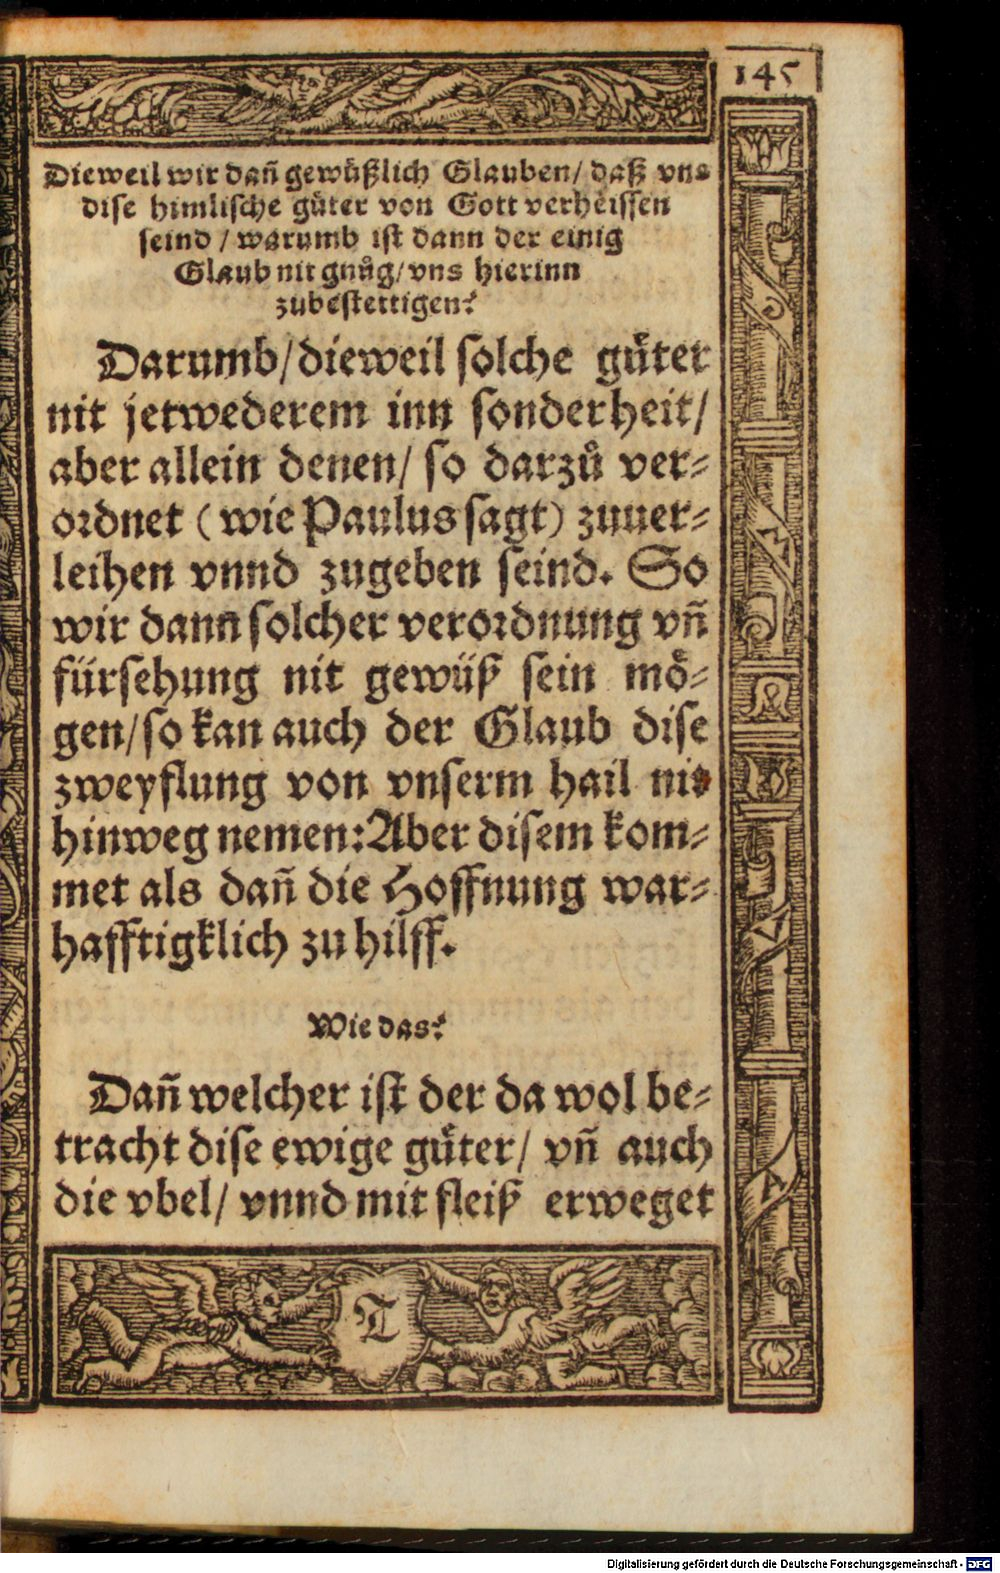 145
Dieweil wir dañ gewüßlich Glauben / daß vns
dise himlische gůter von Gott verheissen
seind / warumb ist dann der einig
Glaub nit gnůg / vns hierinn
zubestettigen?
Darumb / dieweil solche gůter
nit jetwederem inn sonderheit /
aber allein denen / so darzů ver-
ordnet ( wie Paulus sagt ) zuuer-
leihen vnnd zugeben seind. So
wir dann solcher verordnung vñ
fürsehung nit gewüß sein mö-
gen / so kan auch der Glaub dise
zweyflung von vnserm hail nit
hinweg nemen: Aber disem kom-
met als dañ die Hoffnung war-
hafftigklich zu hilff.
Wie das?
Dañ welcher ist der da wol be-
tracht dise ewige gůter / vñ auch
die vbel / vnnd mit fleiß erweget
T
Digitalisierung gefördert durch die Deutsche Forschungsgemeinschaft - DFG